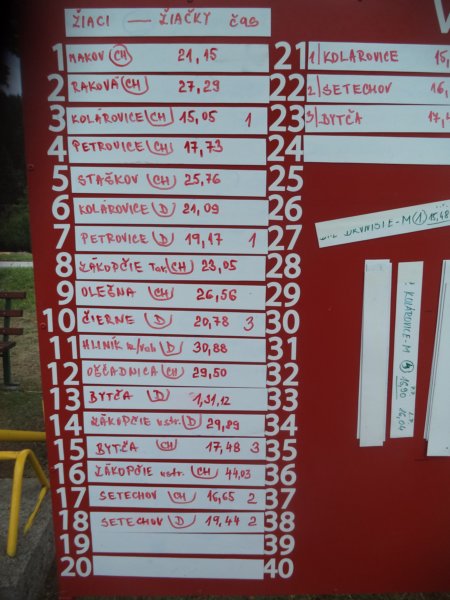 ŽIACI — ŽIAČKY ČAS
1 MAKOV (CH) 21,15
2 RAKOVÁ (CH) 27,29
3 KOLÁROVICE (CH) 15,05 1
4 PETROVICE (CH) 17,73
5 STAŠKOV (CH) 25,76
6 KOLÁROVICE (D) 21,09
7 PETROVICE (D) 19,17 1
8 ZÁKOPČIE (CH) 23,05
9 OLEŠNA (CH) 26,56
10 ČIERNE (D) 20,78 3
11 HLINÍK n/váh (D) 30,88
12 OŠČADNICA (CH) 29,50
13 BYTČA (D) 1,31,12
14 ZÁKOPČIE ustr. (D) 29,89
15 BYTČA (CH) 17,48 3
16 ZÁKOPČIE ustr. (CH) 44,03
17 SETECHOV (CH) 16,65 2
18 SETECHOV (D) 19,44 2
19
20
21 1/ KOLAROVICE 15,
22 2/ SETECHOV 16,
23 3/ BYTČA 17,4
24
25
26
27
28
29
30
31
32
33
34
35
36
37
38
39
40
DRUŽSTIE-M (1) 15,48
KOLÁROVICE-M
15,90 16,04